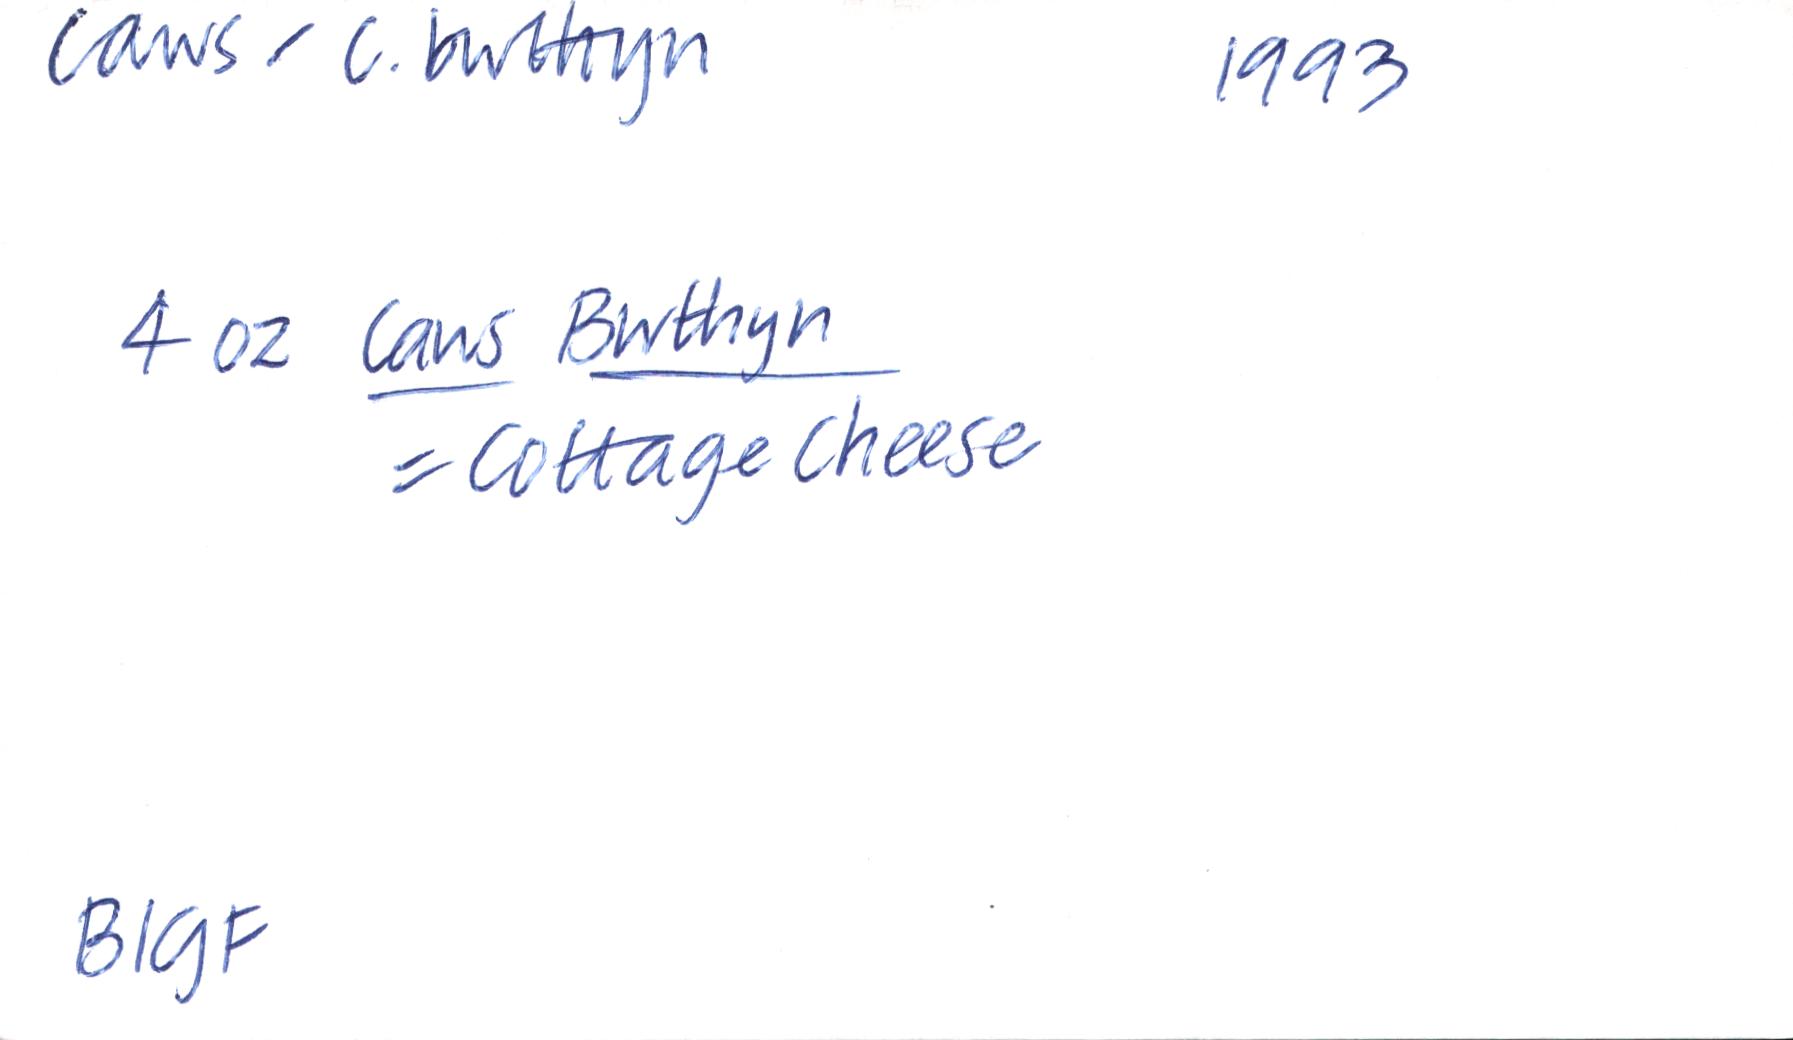 Caws / c. bwthyn 1993
4 oz Caws Bwthyn
= Cottage Cheese
BIGF